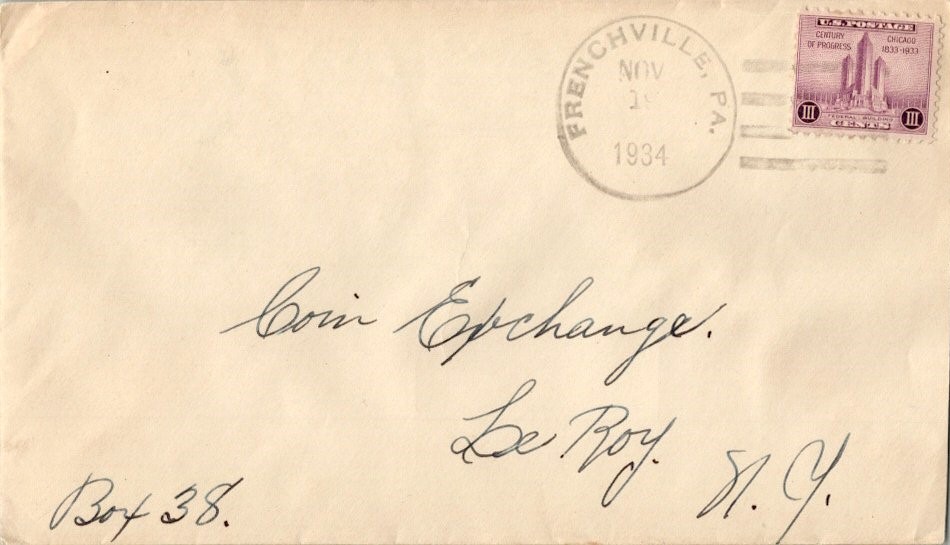 FRENCHVILLE, PA.
NOV
1934
U.S. POSTAGE
CENTURY OF PROGRESS
CHICAGO 1833-1933
III
FEDERAL BUILDING
III
CENTS
Coin Exchange.
Le Roy.
N. Y.
Box 38.